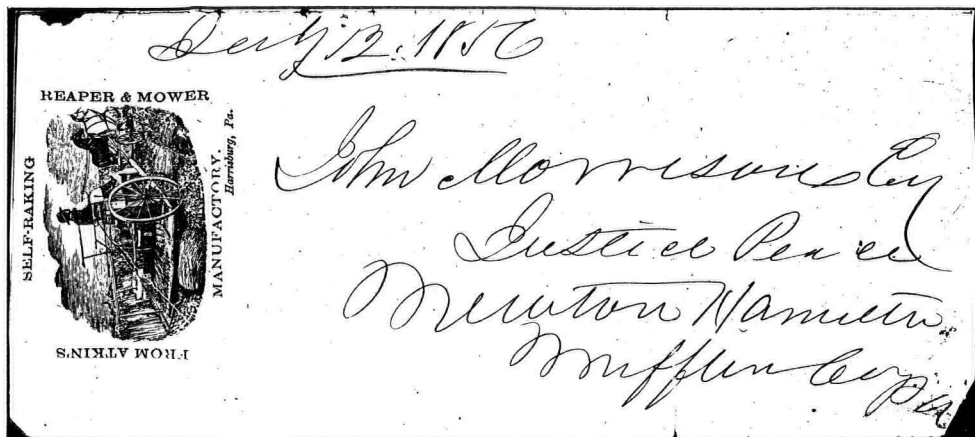 July 12. 1856
FROM ATKIN'S
SELF-RAKING
REAPER & MOWER
MANUFACTORY.
Harrisburg, Pa.
John Morrison Esq
Justice Peace
Newton Hamilton
Mifflin Co Pa